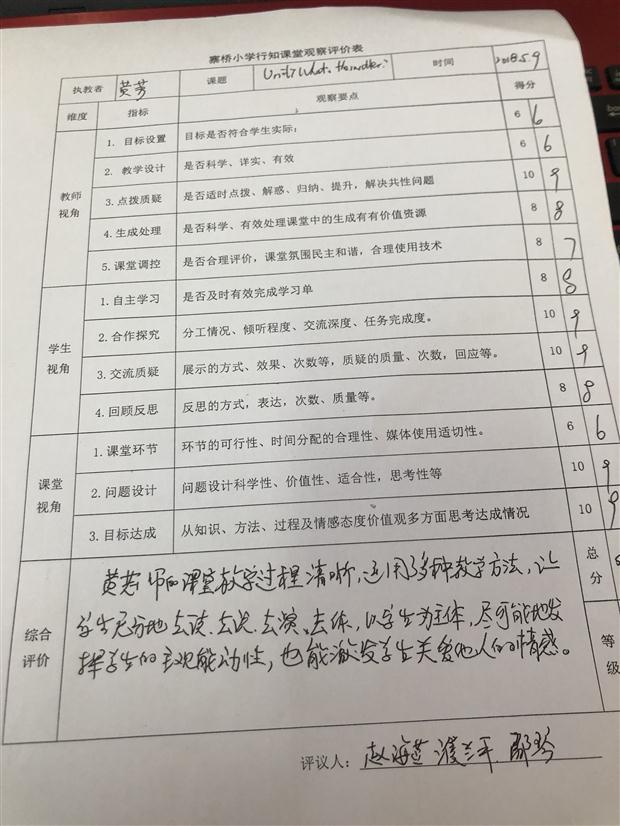 寨桥小学行知课堂观察评价表
执教者 黄芳 课题 Unit7 What's the matter? 时间 2018.5.9
维度 指标 观察要点 得分
教师视角 1. 目标设置 目标是否符合学生实际; 6 6
2. 教学设计 是否科学、详实、有效 6 6
3.点拨质疑 是否适时点拨、解惑、归纳、提升，解决共性问题 10 9
4.生成处理 是否科学、有效处理课堂中的生成有有价值资源 8 8
5.课堂调控 是否合理评价，课堂氛围民主和谐，合理使用技术 8 7
学生视角 1.自主学习 是否及时有效完成学习单 8 8
2.合作探究 分工情况、倾听程度、交流深度、任务完成度。 10 9
3.交流质疑 展示的方式、效果、次数等，质疑的质量、次数，回应等。 10 9
4.回顾反思 反思的方式，表达，次数、质量等。 8 8
课堂视角 1.课堂环节 环节的可行性、时间分配的合理性、媒体使用适切性。 6 6
2.问题设计 问题设计科学性、价值性、适合性，思考性等 10 9
3.目标达成 从知识、方法、过程及情感态度价值观多方面思考达成情况 10 9
综合评价 黄芳师的课堂教学过程清晰，运用多种教学方法，让 总分
学生充分地去读、去说、去演、去练，以学生为主体，尽可能地发
挥学生的主观能动性，也能激发学生关爱他人的情感。 等级
评议人： 赵海燕 濮兰平